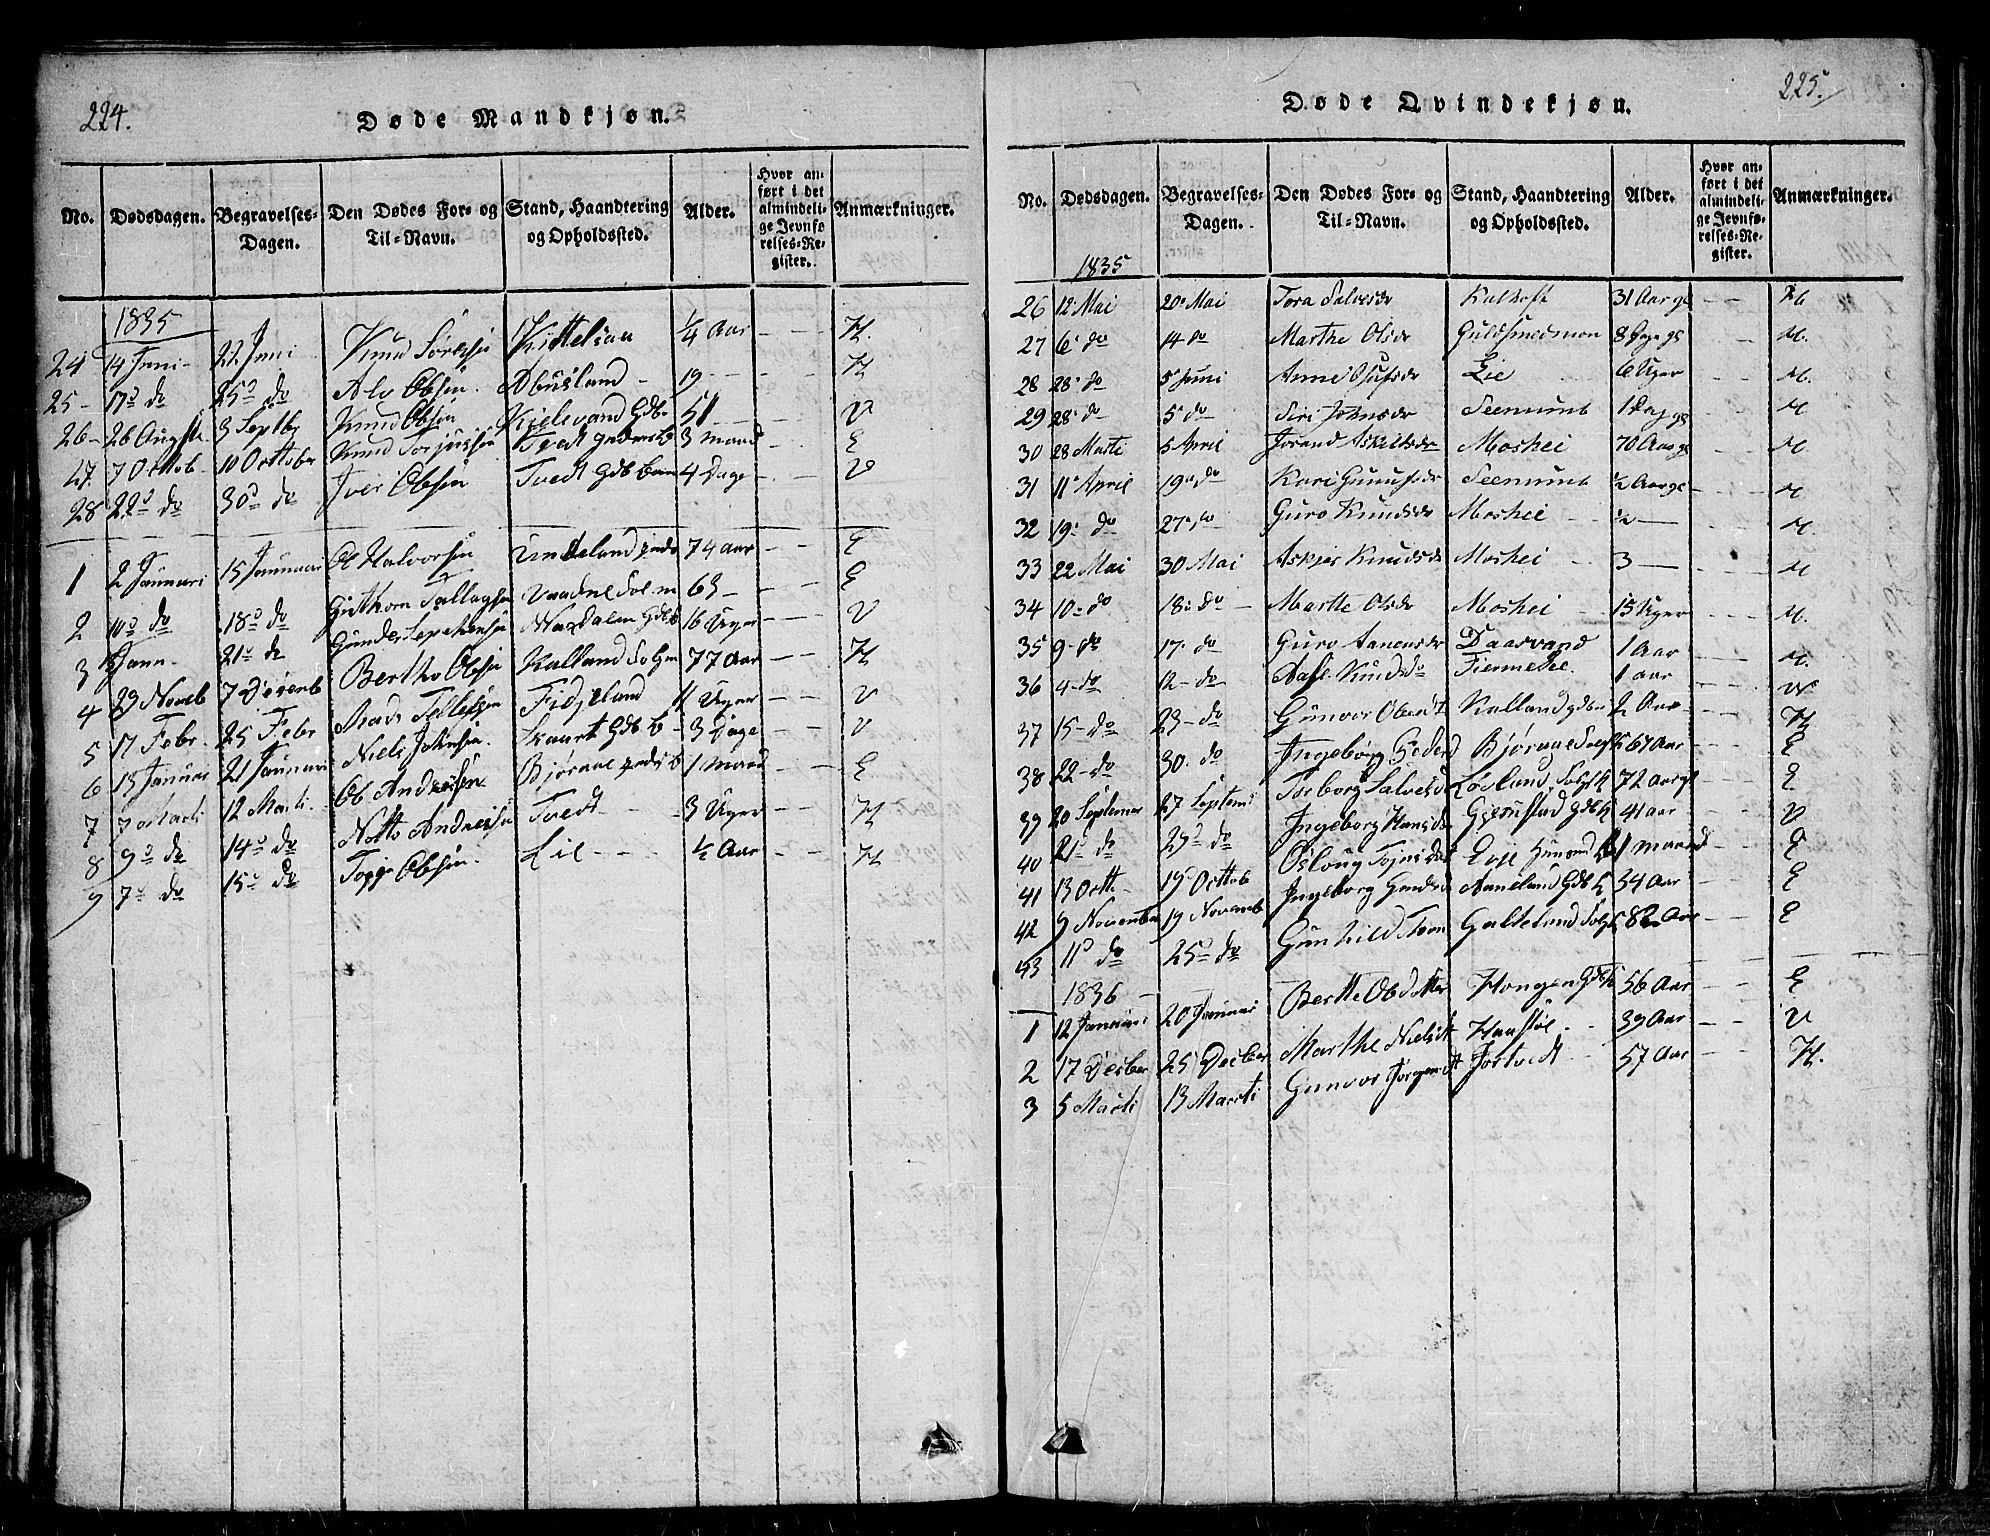 224.
Døde Mandkjøn.
No. Dødsdagen. Begravelses-Dagen. Den Dødes For- og Til-Navn. Stand, Haandtering og Opholdssted. Alder. Hvor anført i det almindelige Jevnførelses-Register. Anmærkninger.
1835
24 14 Juni 22 Juni Knud Kittelsaa ¼ Aar - - H.
25 17 do 25 do Alv Olsen Abusland 19 - - H
26 26 Augst 3 Septbr Knud Olsen Kielevand Gdb. 51 - - V
27 7 Octob 10 Octtober Knud Tvedt 3 Maand - - E
28 22 do 30 do Iver Olsen Tvedt Gdb barn 4 Dage - - V
1 2 Januari 15 Januari Ole Halvorsen 74 Aar - - E
2 10 do 18 do Guthorm Tallagsen 63 - - - E
3 Jann 21 do Gunder 16 Uger - - V
4 23 Noveb 7 Decemb Bertho Olsen Kalland 77 Aar - - H
5 17 Febr. 25 Febr Mads Tellefsen Fidjeland 11 Uger - - V
6 13 Januar 21 Januari Niels Johnsen Skaart Gdb B 3 Dage - - V
7 7 Marti 12 Marti Ole Andersen Bjoraae 1 Maand - - E
8 9 do 14 do Notto Andersen Tvedt 3 Uger - - H
9 7 do 15 do Togge Olsen Lie ½ Aar - - H
225.
Døde Qvindekjøn.
No. Dødsdagen. Begravelses-Dagen. Den Dødes For- og Til-Navn. Stand, Haandtering og Opholdssted. Alder. Hvor anført i det almindelige Jevnførelses-Register. Anmærkninger.
1835
26 12 Mai 20 Mai Tora Salvesdr 31 Aar gl - - H
27 6 do 14 do Marthe Olsdr Guldsmedmon 8 - - M.
28 28 do 5 Juni Anne Olufsdr Lie 6 Uger - - M.
29 28 do 5 do Siri Johnsdr Seemund 1 Dag gl - - M
30 28 Marti 5 April Jorand Askelsdr Moshei 70 Aar gl - - M.
31 11 April 19 do Kari Gunufsdr Seemund ½ Aar gl - - M
32 19 do 27 do Guro Knudsdr Moshei ½ - - M.
33 22 Mai 30 Mai Askjer Knudsdr Moshei 3 - - M
34 10 do 18 do Marthe Olsdr Moshei 15 Uger - - M.
35 9 do 17 do Guro Aanensdr Daasvand 1 Aar - - M.
36 4 do 12 do Knudsdr 1 aar - - M
37 15 do 23 do Gunvor Olsdt Kalland 2 Aar - - H
38 22 do 30 do Ingeborg Bjoraae 67 Aar - - E
39 20 Septemer 27 Septem Torborg Salvesd Løvland 72 Aar gl - - E
40 21 do 29 do Ingeborg Hansdr Gjerustad Gdb k 41 aar - - V
41 13 Octb 19 Octtob Oslaug Evje 1 maand - - E
42 9 November 19 Novemb Ingeborg Aaneland Gdb k 34 Aar - - E
43 11 do 25 do Gunhild Galteland 82 Aar - - E
1836
1 12 Januari 20 Januar Berthe Olsdotter Hougen Gdb k 56 Aar - - E
2 17 Decber 25 Decber Marthe Nielsdt Haastøl 39 Aar - - V
3 5 Marti 13 Marti Gunvor Jorgensdt Fortvedt 57 Aar - - H.